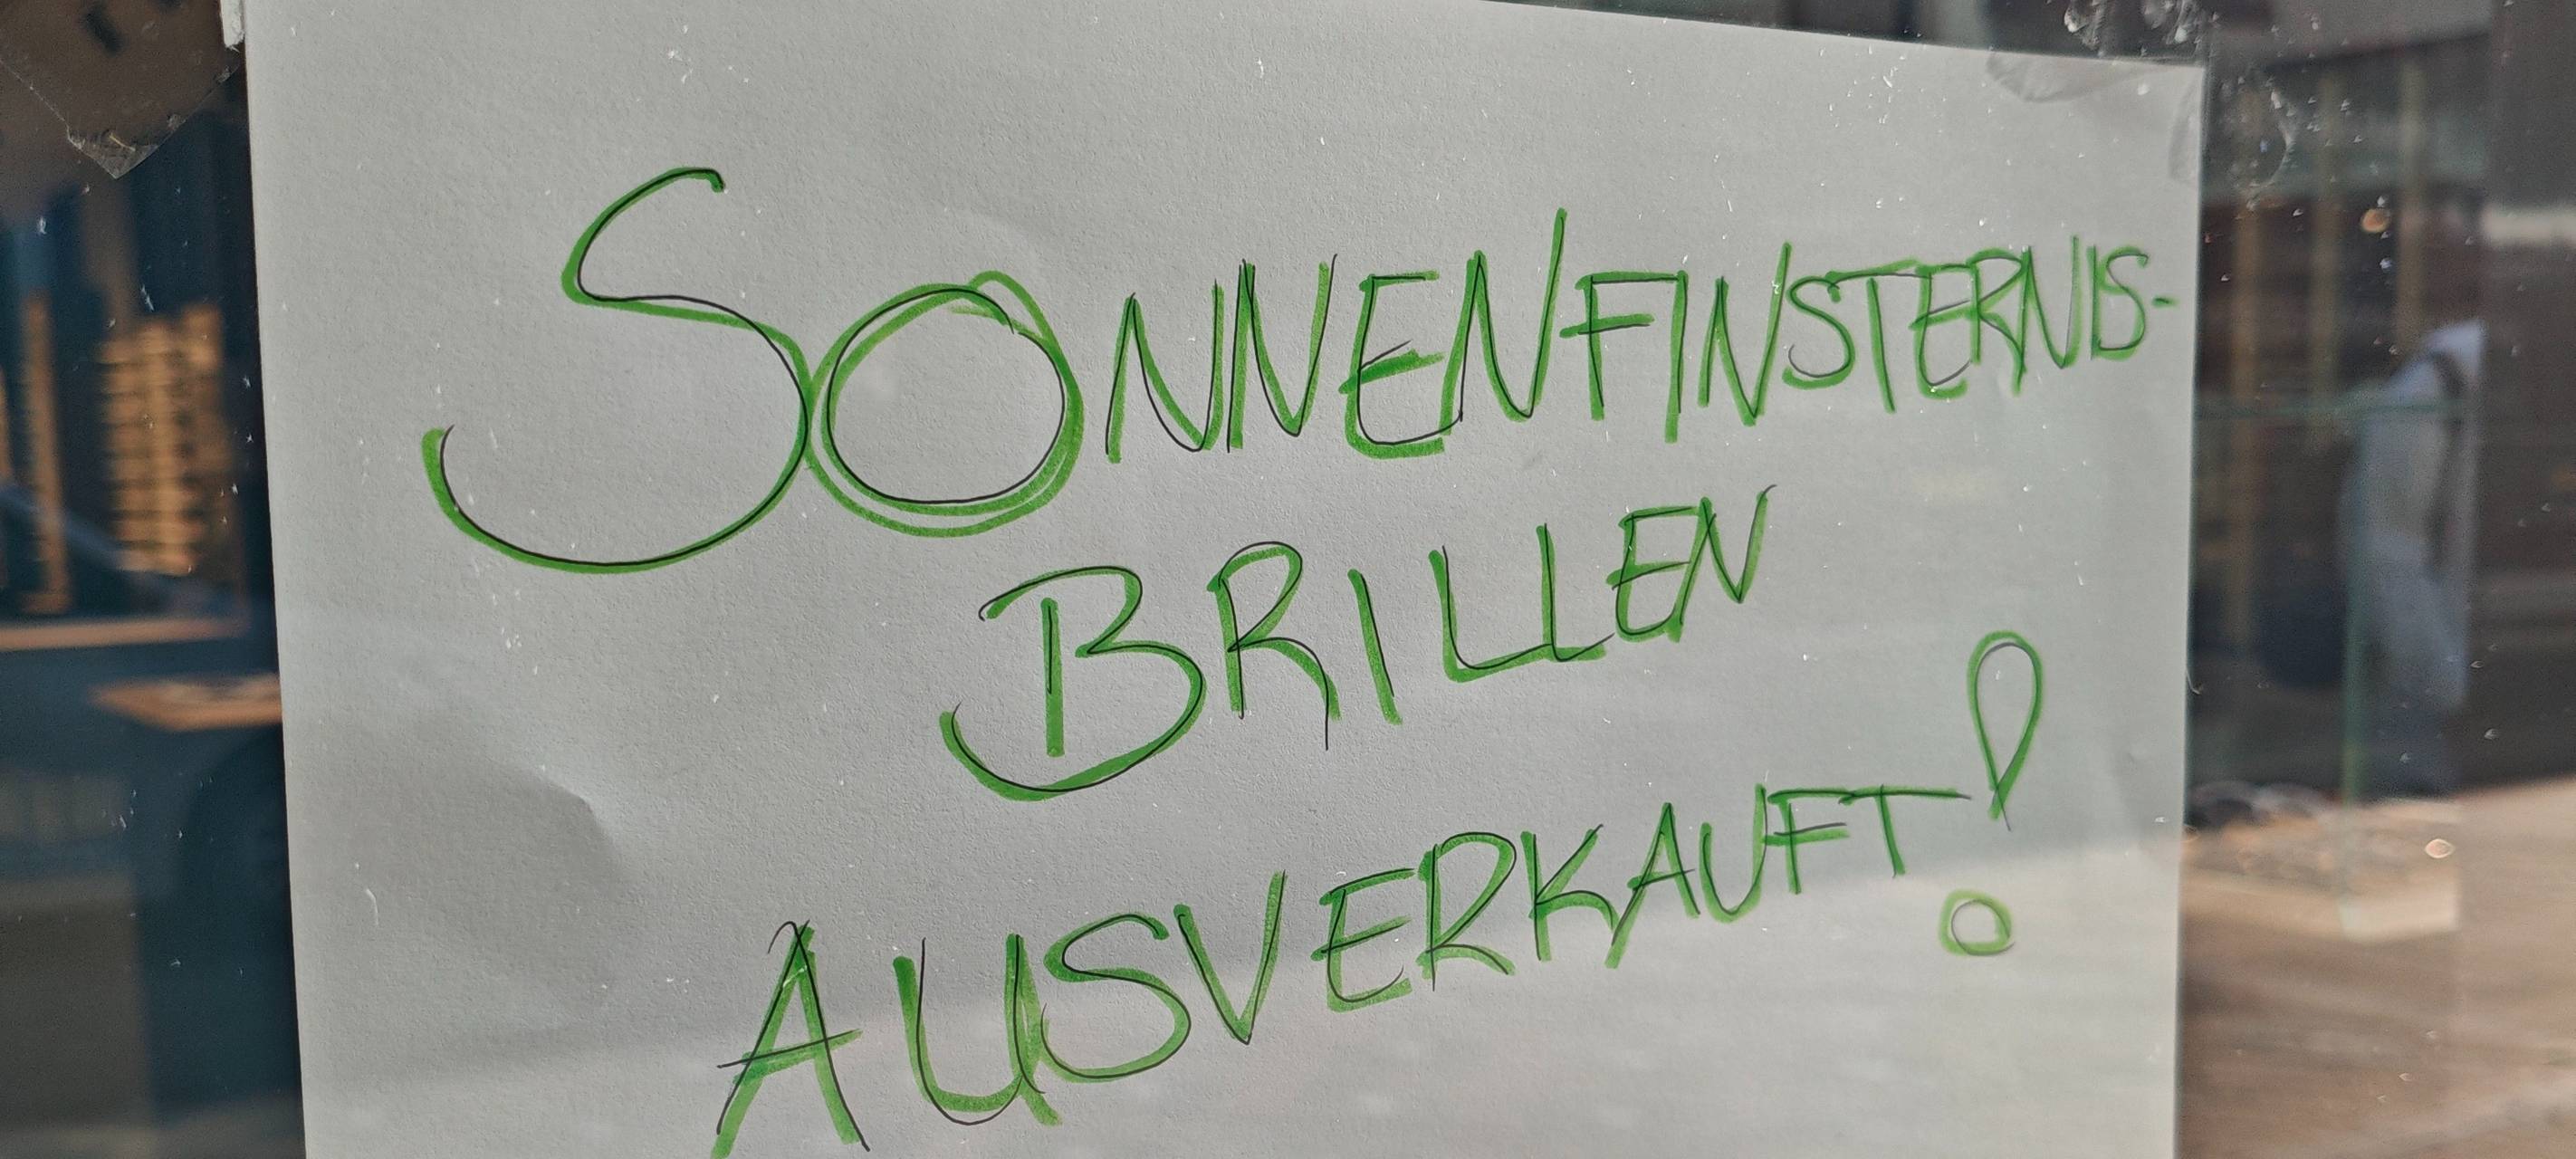 SONNENFINSTERNIS-
BRILLEN
AUSVERKAUFT!